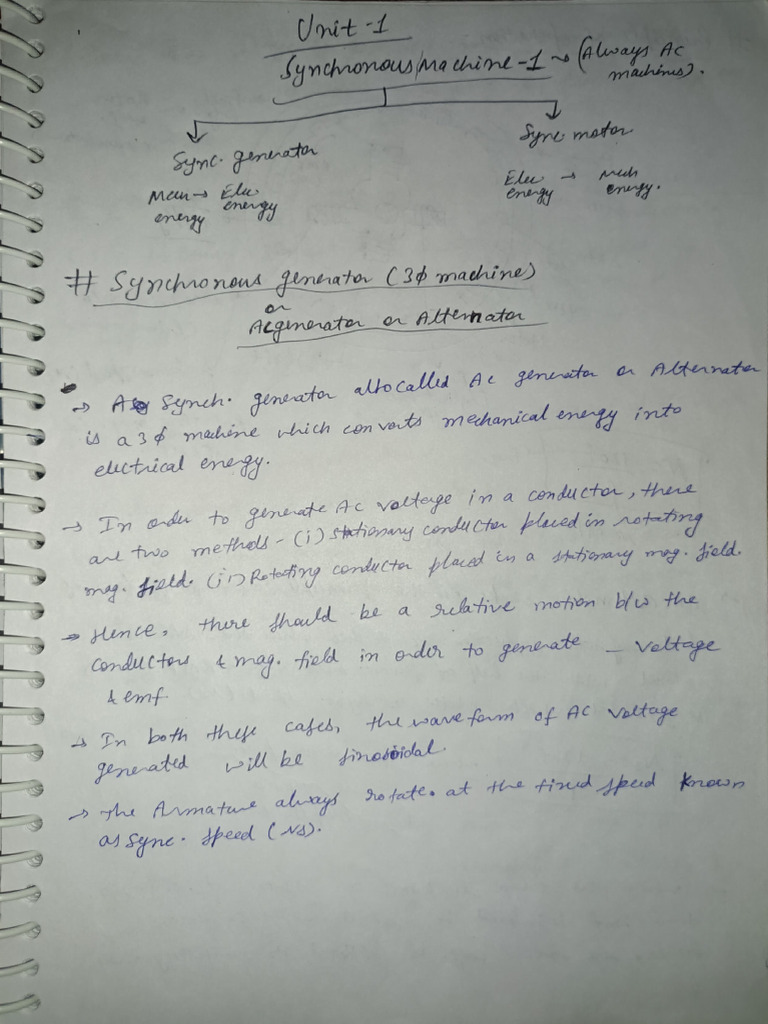 Unit-1
Synchronous Machine-1 → (Always AC
machines).
Sync. generator
Sync. motor
Mech → Elec
energy energy
Elec → Mech
energy energy.
# Synchronous generator (3ϕ machine)
or
AC generator or Alternator
→ A Synch. generator also called AC generator or Alternator
is a 3ϕ machine which converts mechanical energy into
electrical energy.
→ In order to generate AC voltage in a conductor, there
are two methods - (i) Stationary conductor placed in rotating
mag. field. (ii) Rotating conductor placed in a stationary mag. field.
→ Hence, there should be a relative motion b/w the
conductors & mag. field in order to generate - voltage
& emf
→ In both these cases, the wave form of AC voltage
generated will be sinosoidal.
→ The Armature always rotate. at the fixed speed known
as sync. speed (Ns).